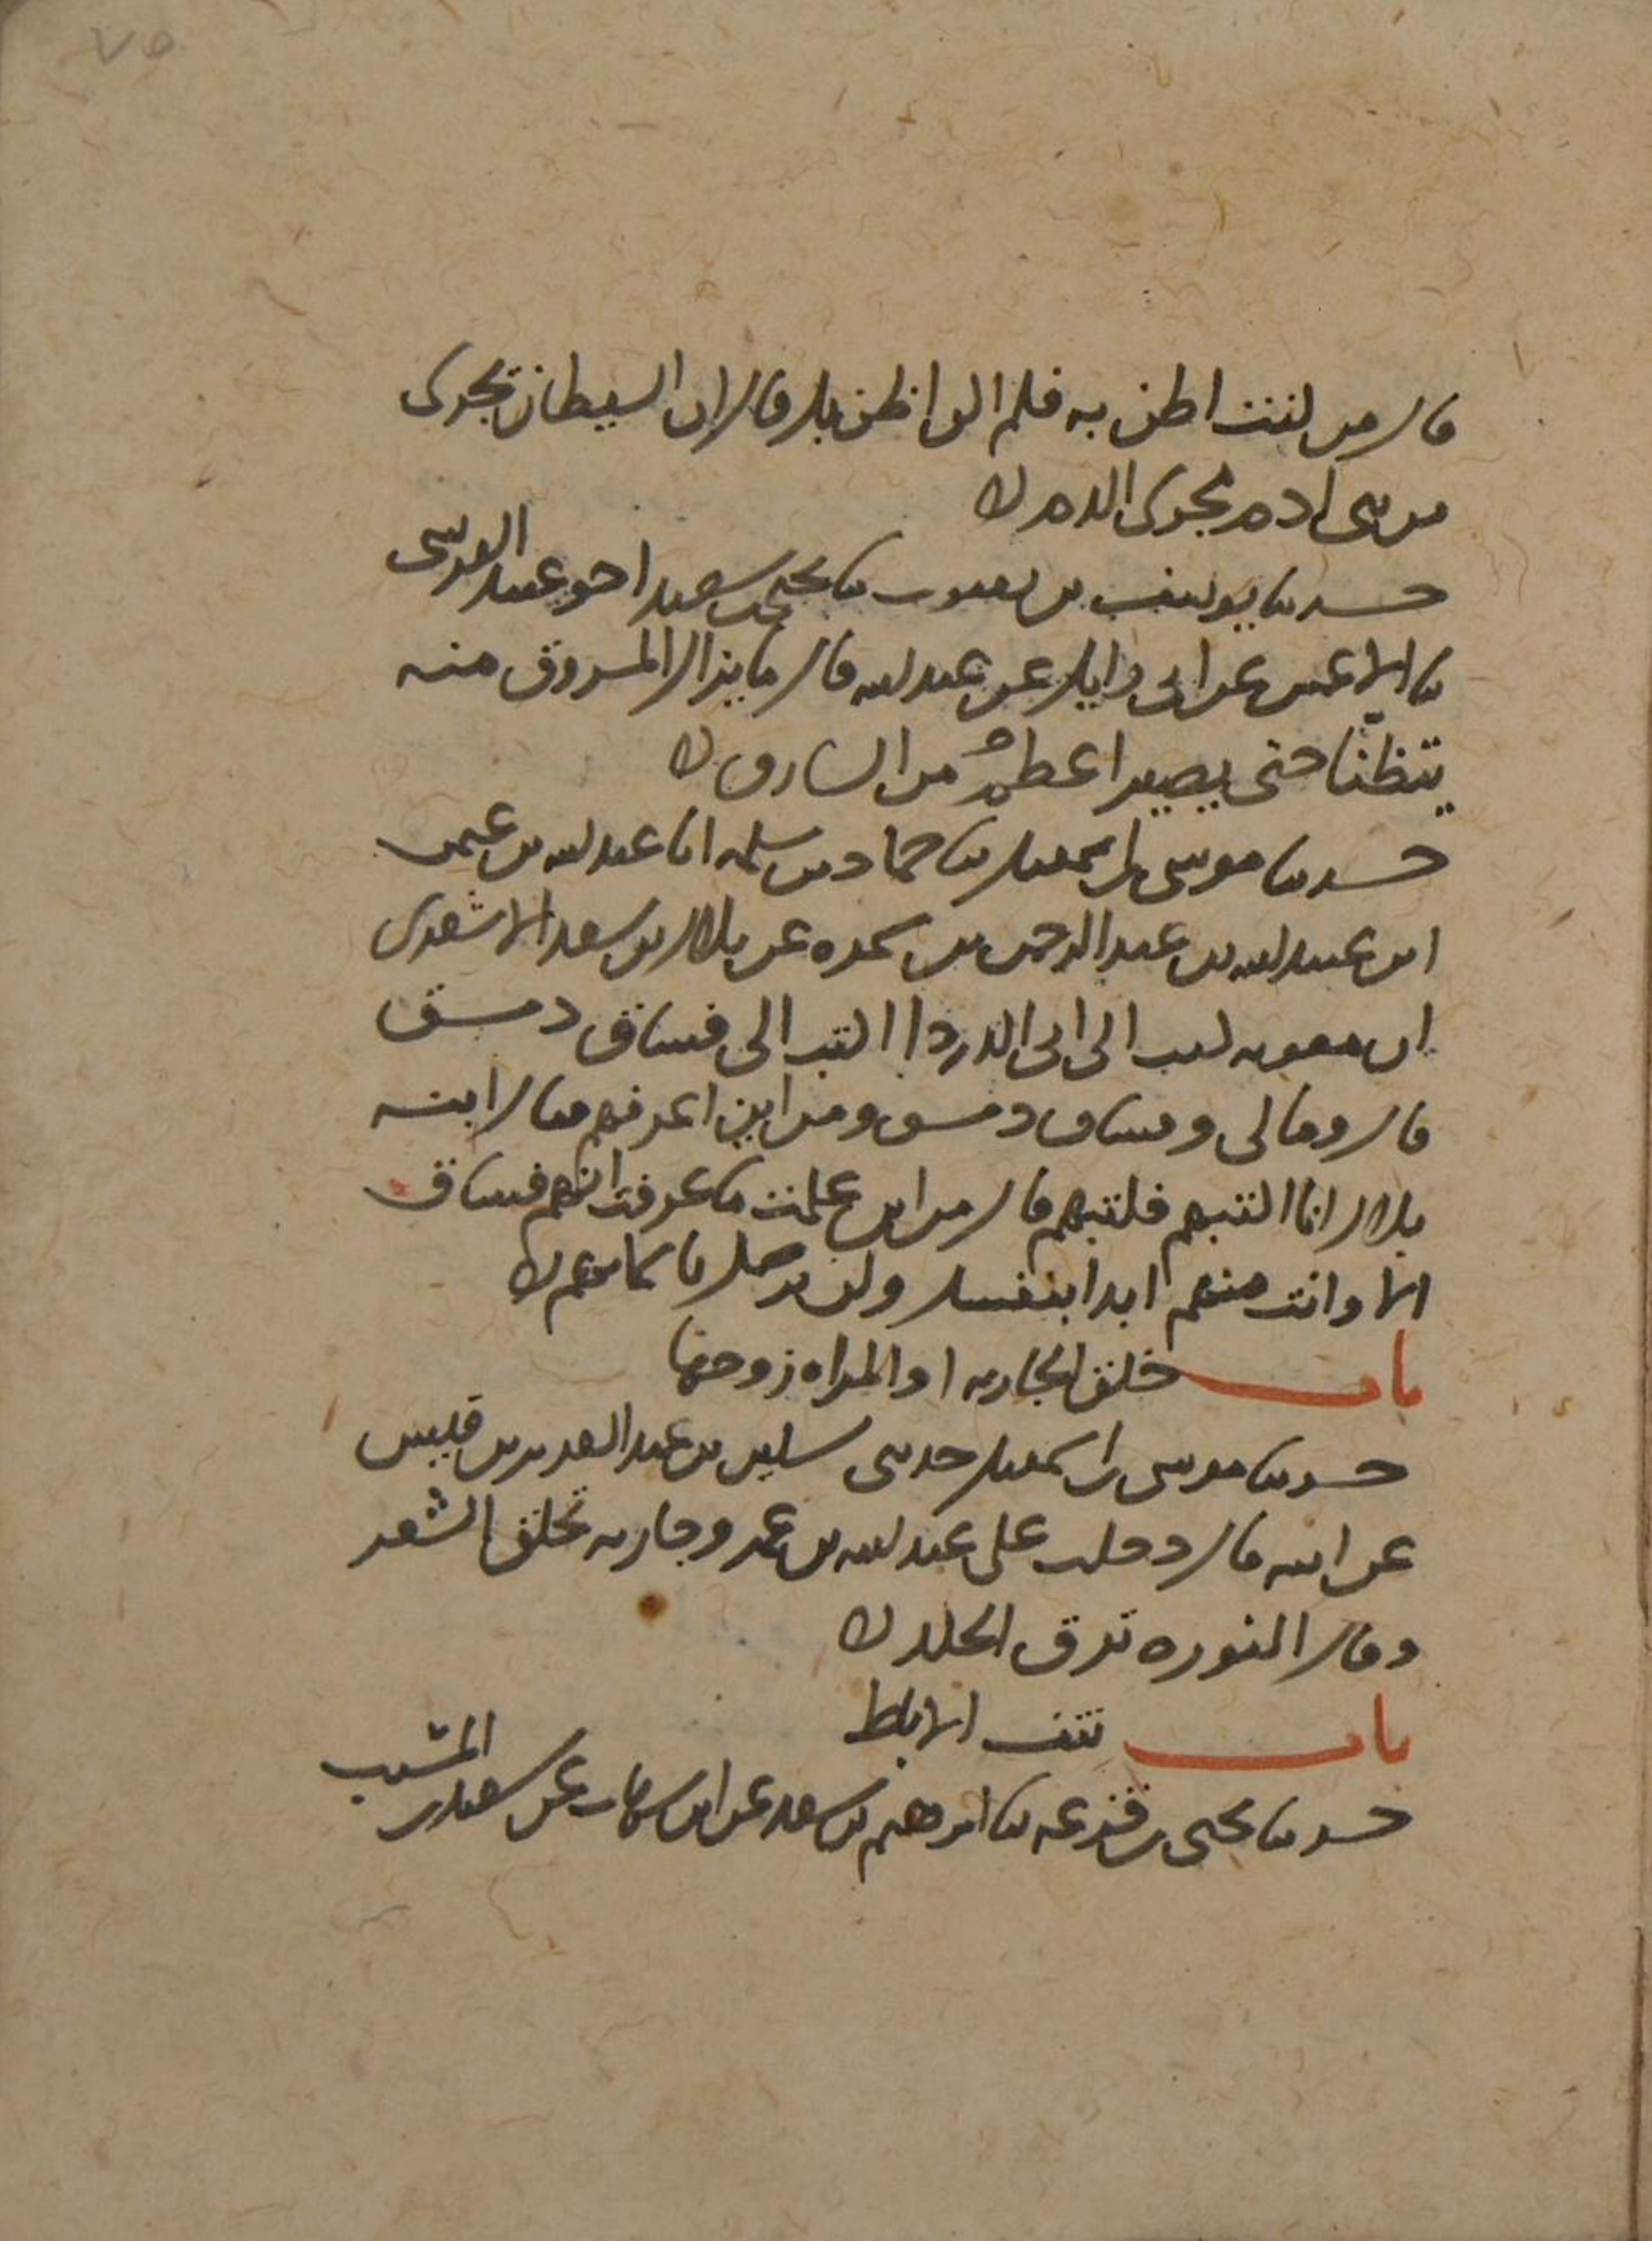 ٧٥
قال من كنت اظن به فلم اكن اظن بك قال ان الشيطان يجرى
من بنى ادم مجرى الدم
حدثنا يوسف بن يعقوب ثنا يحيى بن سعيد اخو عبيد القرشى
ثنا الاعمش عن ابى وايل عن عبد الله قال ما يزال المسروق منه
يتظنا حتى يصير اعظم من السارق
حدثنا موسى بن اسمعيل ثنا حماد بن سلمه انا عبد الله بن عثمن
ابن عبيد الله بن عبد الرحمن بن سمره عن بلال بن سعد الاشعرى
ان معويه كتب الى ابى الدردا اكتب الى فساق دمشق
قال ومالى وفساق دمشق ومن اين اعرفهم فقال ابنه
بلال انا اكتبهم فكتبهم قال من اين علمت ما عرفت انهم فساق
الا وانت منهم ابدا بنفسك ولم يرسل باسمايهم
باب خلق الجاريه او المراه زوجها
حدثنا موسى بن اسمعيل حدثنى سكين بن عبد العزيز بن قيس
عن ابيه قال دخلت على عبد الله بن عمر وجاريه تحلق الشعر
وقال النوره ترق الجلد
باب نتف الابط
حدثنا يحيى بن قزعه ثنا ابرهيم بن سعد عن ابن شهاب عن سعيد بن المسيب